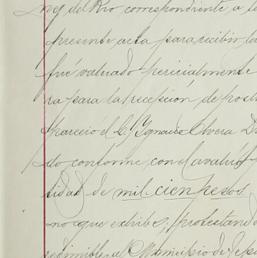 del Rio correspondiente a l
presente acta para recibir la
fué valuado pericialmente
ra para la recepción de post
pareció el C. Ygnacio Olvera D
do conforme con el avalúo
tidad de mil cien pesos
no que exhibe, protestand
redimirle al Municipio de